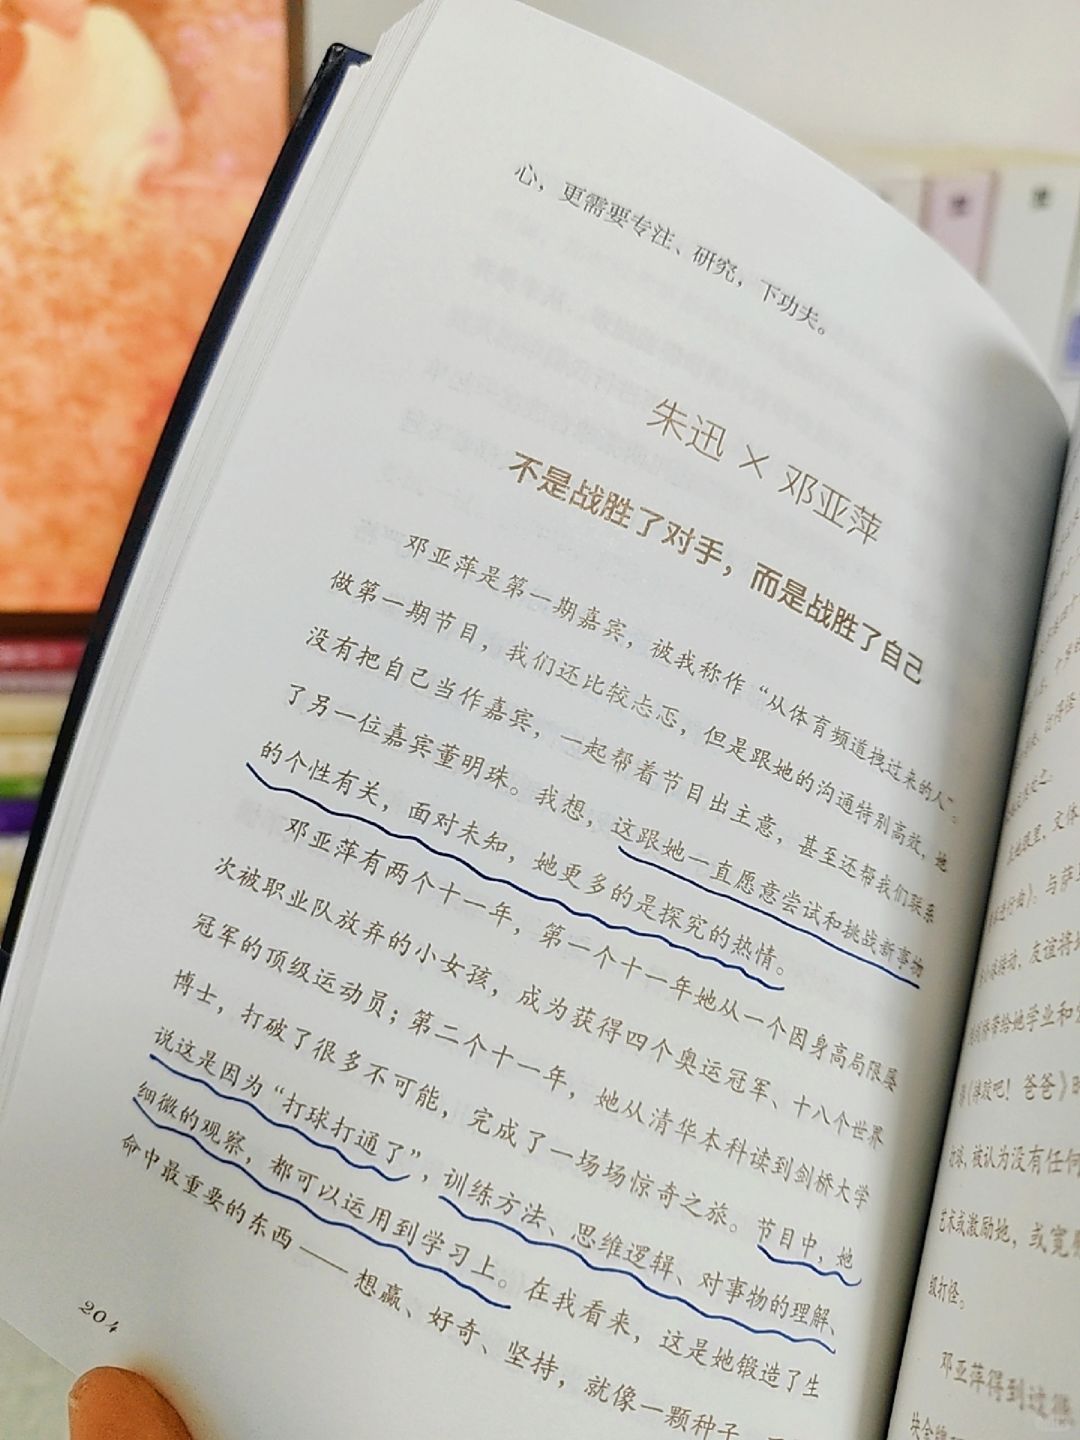 心，更需要专注、研究，下功夫。
朱迅 × 邓亚萍
不是战胜了对手，而是战胜了自己
邓亚萍是第一期嘉宾，被我称作“从体育频道拽过来的人”。
做第一期节目，我们还比较忐忑，但是跟她的沟通特别高效，她
没有把自己当作嘉宾，一起帮着节目出主意，甚至还帮我们联系
了另一位嘉宾董明珠。我想，这跟她一直愿意尝试和挑战新事物
的个性有关，面对未知，她更多的是探究的热情。
邓亚萍有两个十一年，第一个十一年她从一个因身高局限屡
次被职业队放弃的小女孩，成为获得四个奥运冠军、十八个世界
冠军的顶级运动员；第二个十一年，她从清华本科读到剑桥大学
博士，打破了很多不可能，完成了一场场惊奇之旅。节目中，她
说这是因为“打球打通了”，训练方法、思维逻辑、对事物的理解、
细微的观察，都可以运用到学习上。在我看来，这是她锻造了生
命中最重要的东西——想赢、好奇、坚持，就像一颗种子，
204
文体
》。与萨
友谊将
带给她学业和
吧！爸爸》
被认为没有任何
艺术或激励她，或宽
级打怪。
邓亚萍得到这
块金牌